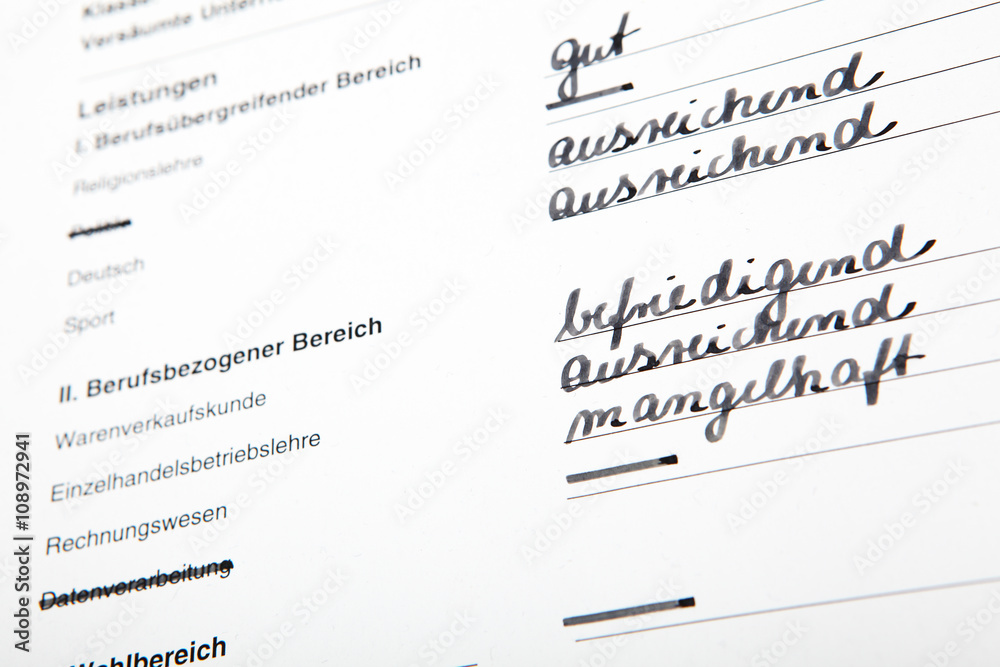 Klasse
Versäumte Unterri
Leistungen
I. Berufsübergreifender Bereich
Religionslehre gut
Politik
Deutsch ausreichend
Sport ausreichend
II. Berufsbezogener Bereich
Warenverkaufskunde befriedigend
Einzelhandelsbetriebslehre ausreichend
Rechnungswesen mangelhaft
Datenverarbeitung
Wahlbereich
Adobe Stock | #108972941